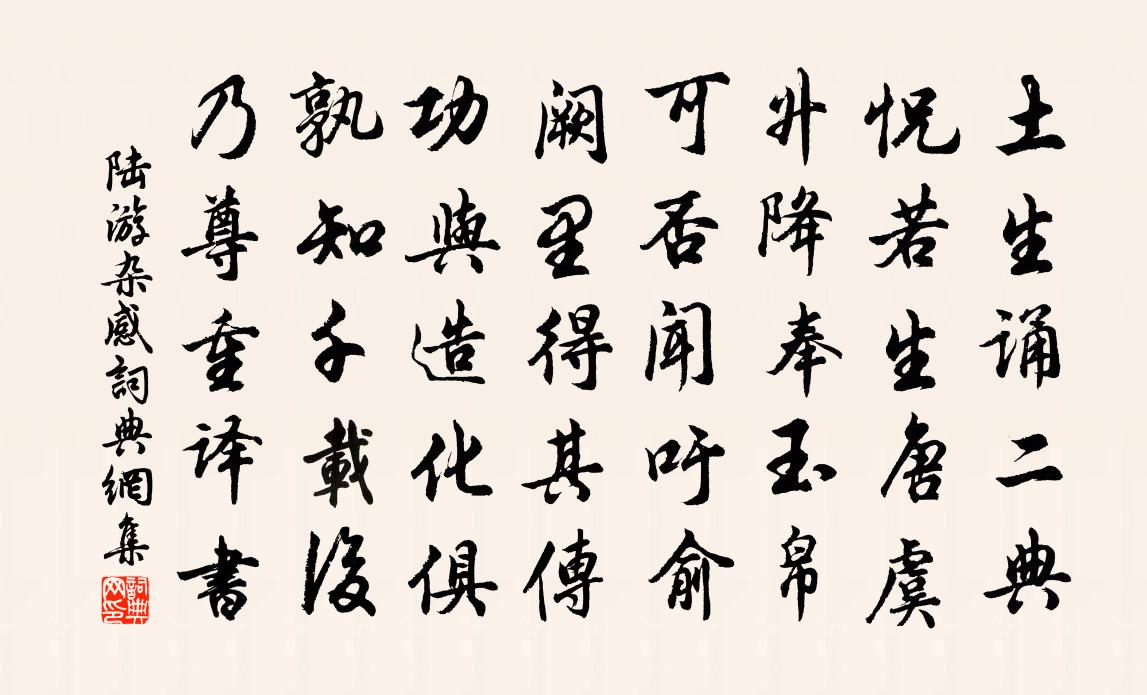 土生诵二典
怳若生唐虞
升降奉玉帛
可否闻吁俞
阙里得其傳
功與造化俱
孰知千載後
乃尊重译書
陆游杂感詞典網集
詞典网印